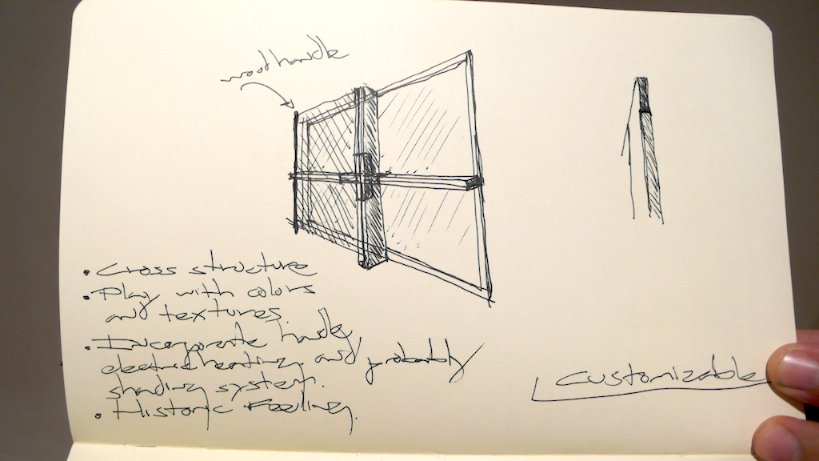 wood handle
• Cross structure
• Play with colors
and textures.
• Incorporate handle,
electric heating and probably
shading system.
• Historic Feeling.
Customizable